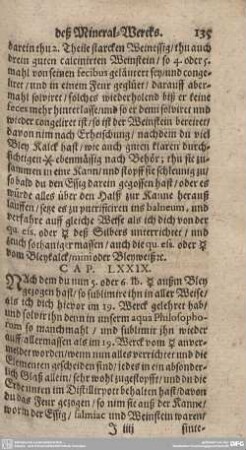 deß Mineral-Wercks. 135
darein thu 2. Theile starcken Weinessig/ thu auch
drein guten calcinirten Weinstein/ so 4. oder 5.
mahl von seinen fecibus geläutert sey/ und conge-
liret/ und in einem Feur geglüet/ darauff aber-
mahl solviret/ solches wiederholend biß er keine
feces mehr hinterlasse/ und so er denn solviret und
wieder congelirt ist/ so ist der Weinstein bereitet/
davon nim nach Erheischung/ nachdem du viel
Bley Kalck hast/ wie auch guten klaren durch-
sichtigen ✶ ebenmässig nach Behör; thu sie zu-
sammen in eine Kann/ und stopff sie schleunig zu/
so bald du den Essig darein gegossen hast/ oder es
würde alles über den Halß zur Kanne herauß
lauffen/ setze es zu putrificiren ins balneum, und
verfahre auff gleiche Weise als ich dich von der
qu. ess. oder ☿ deß Silbers unterrichtet/ und
leuch sothaniger massen/ auch die qu. ess. oder ☿
vom Bleykalck/ oder Bleyweiß ꝛc.
CAP. LXXIX.
Nach dem du nun 5. oder 6. lb. ☿ außm Bley
gezogen hast/ so sublimire ihn in aller Weise/
als ich dich hievor am 19. Werck gelehret hab/
und solvir ihn denn in unserm aqua Philosopho-
rum so manchmahl/ und sublimir ihn wieder
auff allermassen als im 19. Werck vom ☿ anver-
meldet worden/ wenn nun alles verrichtet und die
Elementen gescheiden sind/ jedes in ein absonder-
lich Glaß allein/ sehr wohl zugestopfft/ und du die
Erde innen im Distillirpott behalten hast/ davon
du das Feur gezogen/ so nim sie auß der Kanne/
worin der Essig/ salmiac und Weinstein waren/
J iiij sinte-